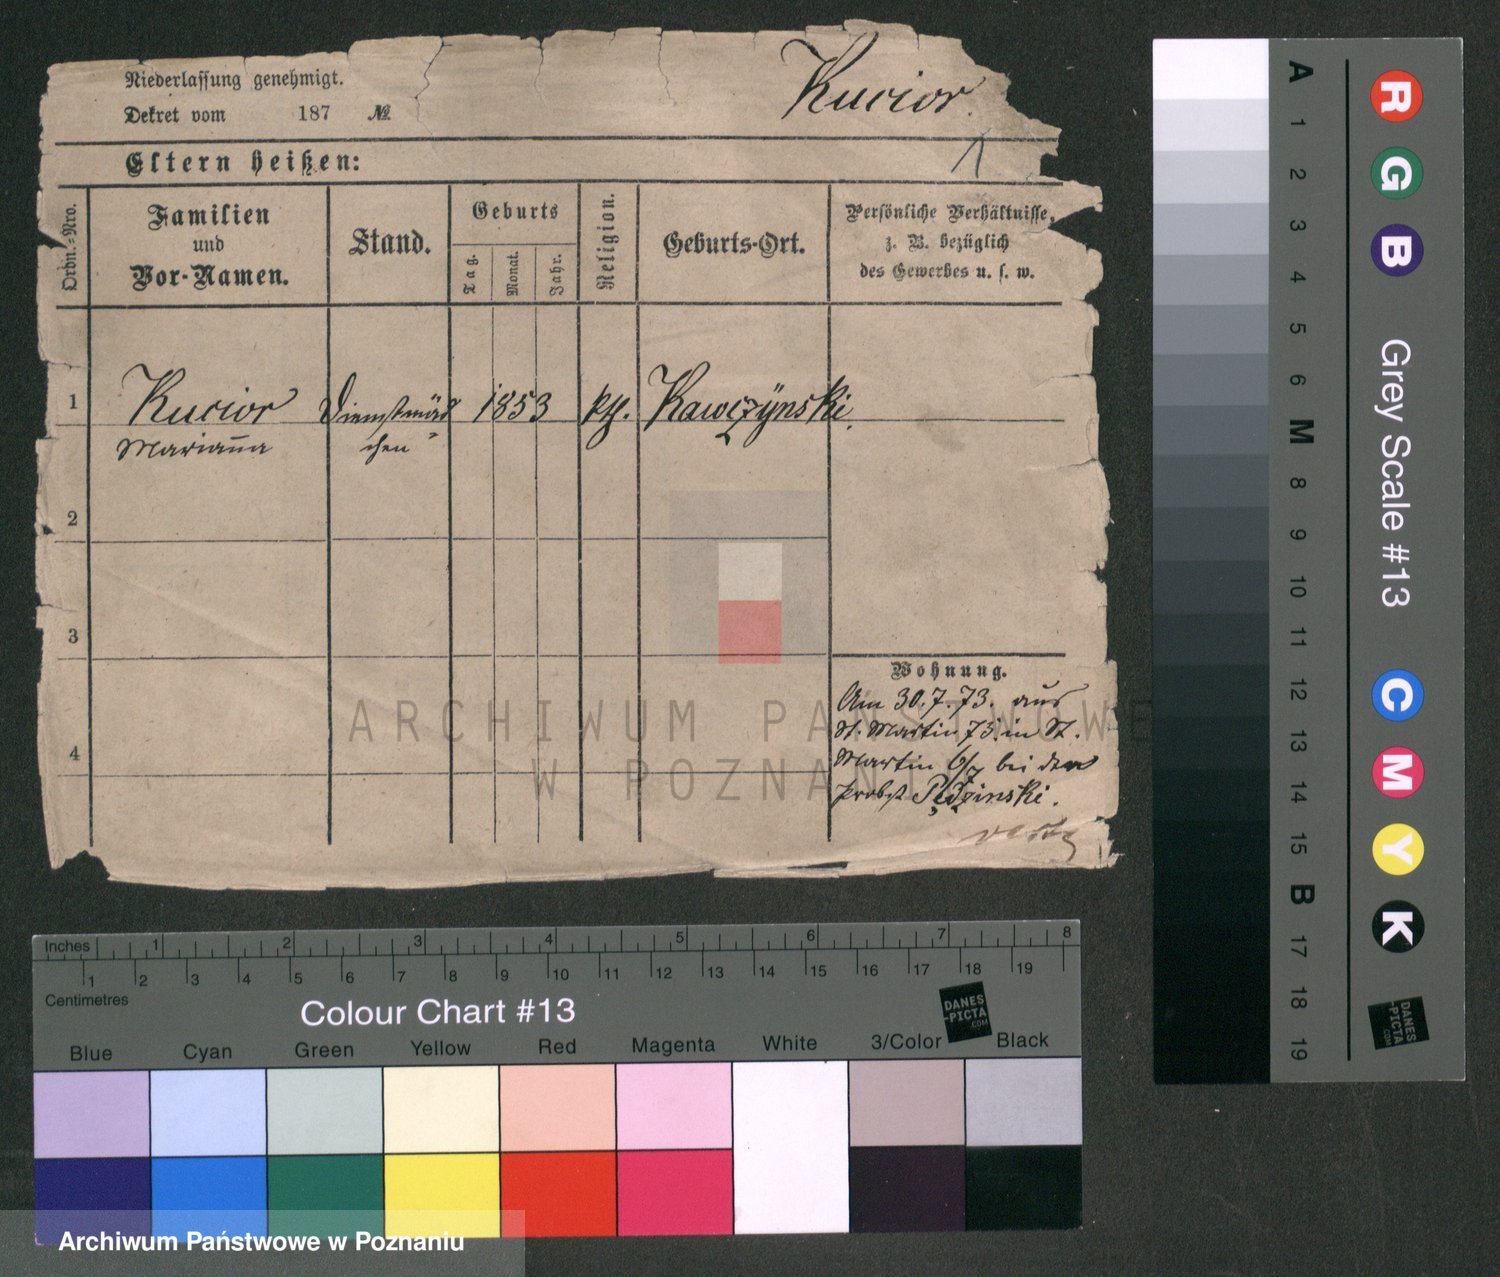 Kucior.
Niederlassung genehmigt.
Dekret vom 187 №
Eltern heißen:
Ordn.-Nro.
Familien
und
Vor-Namen.
Stand.
Geburts
Tag.
Monat.
Jahr.
Religion.
Geburts-Ort.
Persönliche Verhältnisse,
z. B. bezüglich
des Gewerbes u. s. w.
1 Kucior Dienstmäd 1853 Kawczÿnski.
Marianna chen
2
3
4
Wohnung.
Am 30.7.73. aus
St. Martin 73. in St.
Martin 6/7 bei dem
Probst
ARCHIWUM PAŃSTWOWE
W POZNANIU
A 1 2 3 4 5 6 M 8 9 10 11 12 13 14 15 B 17 18 19
R G B Grey Scale #13 C M Y K
DANES
-PICTA
.COM
Inches 1 2 3 4 5 6 7 8
1 2 3 4 5 6 7 8 9 10 11 12 13 14 15 16 17 18 19
Centimetres
Colour Chart #13
DANES
-PICTA
.COM
Blue Cyan Green Yellow Red Magenta White 3/Color Black
Archiwum Państwowe w Poznaniu